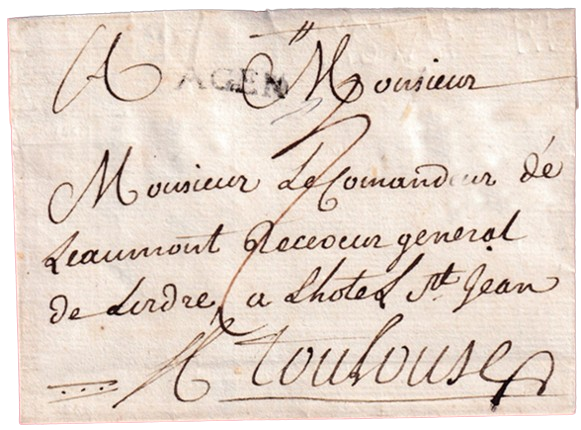 A AGEN Monsieur
Monsieur Le Comandeur de
Leaumont Receveur general
de Lordre, a Lhotel St Jean
A Toulouse